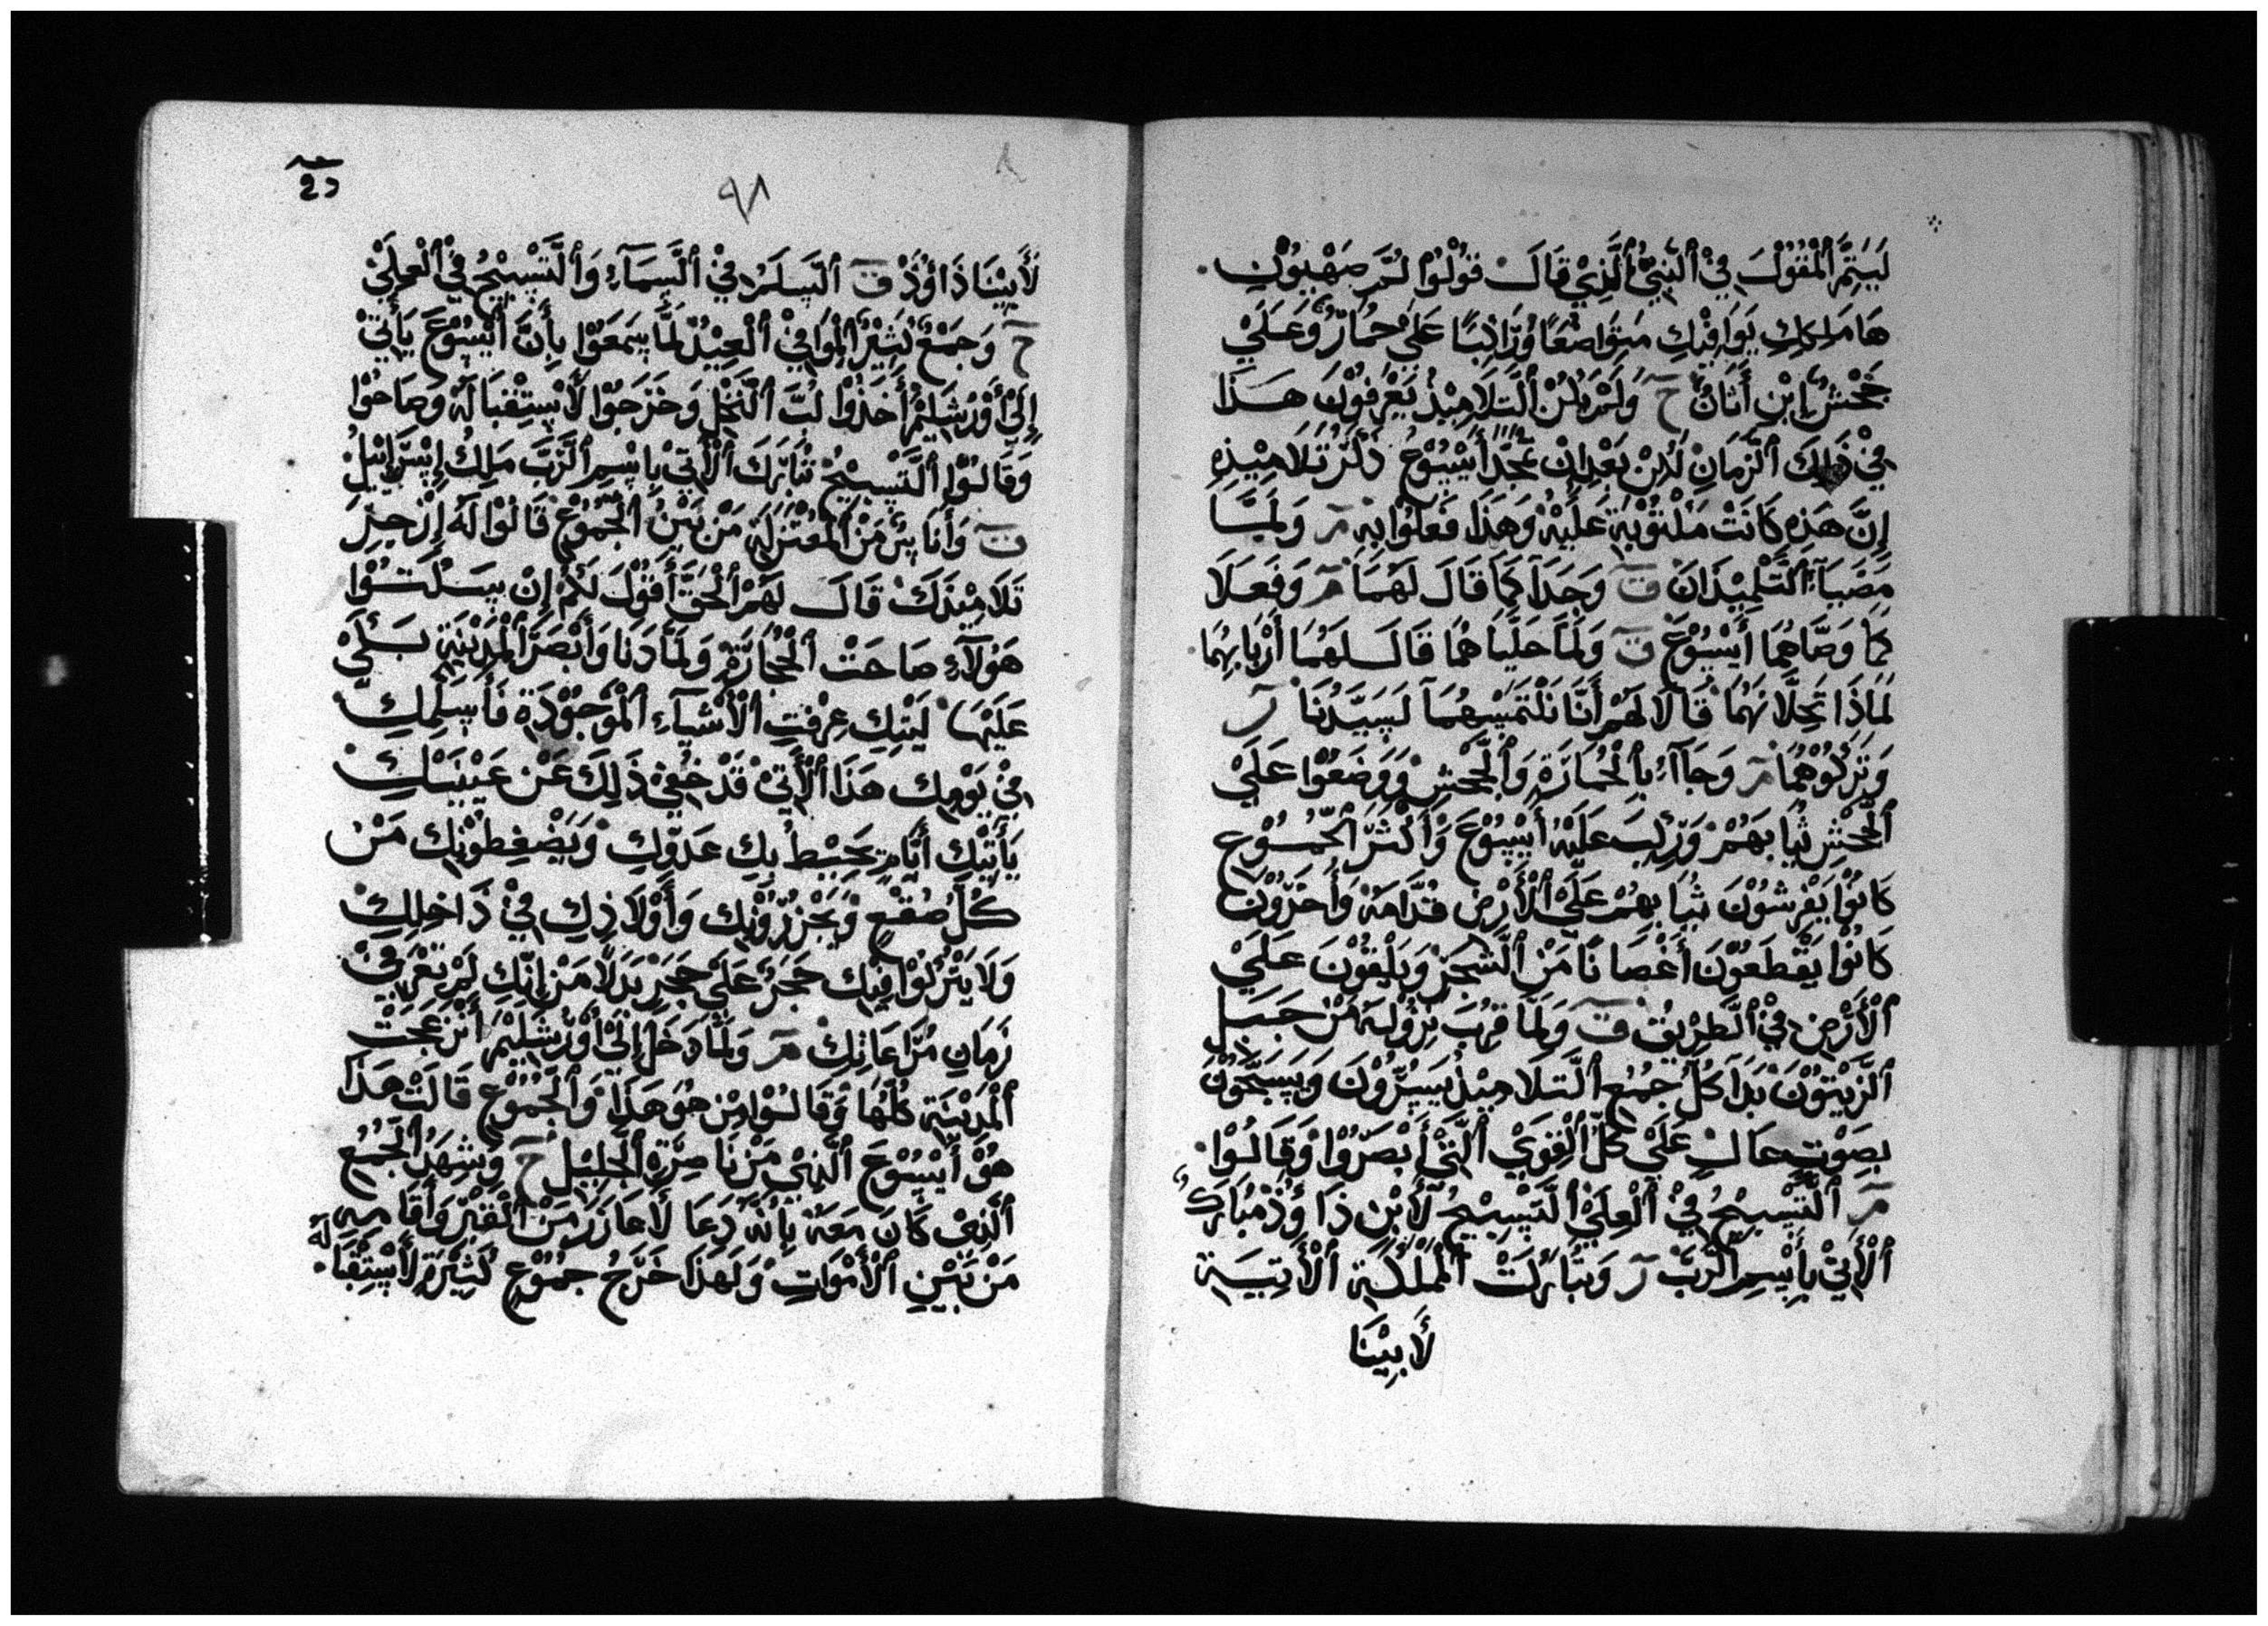 ليتم المقول في النبي الذي قال قولوا لكم صهيون
ها ملكك يوافيك متواضعا وراكبا على حمار وعلى
جحش ابن أتان ح ولم يكن التلاميذ يعرفون هذا
في ذلك الزمان لكن بعد ان مجد أيسوع ذكر تلاميذه
إن هذه كانت مكتوبة عليه وهذا فعلوا به م ولما
مضيا التلميذان ق وجدا كما قال لهما م وفعلا
كما وصاهما أيسوع ق ولما حلياهما قال لهما أربابهما
لماذا تحلانهما قالا لهم أنا نلتمسهما لسيدنا ر
وتركوهما م وجاآء بالحمارة والجحش ووضعوا على
الجحش ثيابهم وركب عليه أيسوع وأكثر الجموع
كانوا يفرشون ثيابهم على الأرض قدامه وأخرون
كانوا يقطعون أغصانا من الشجر ويلقون على
الأرض في الطريق ق ولما قرب نزوله من جبل
الزيتون بدا كل جمع التلاميذ يسرون ويسبحون
بصوت عال على كل القوى التي أبصروا وقالوا
م التسبيح في العلي التسبيح لأبن داوذ مبارك
الأتي بأسم الرب ر وتباركت الملكة الأتية
لأبينا
٩٨
لأبينا داوؤذ ق السلم في السماء والتسبيح في العلي
ح وجمع كثير الموافي العيد لما سمعوا بأن أيسوع يأتي
إلى أورشليم أخذوا لب النخل وخرجوا لأستقباله وصاحوا
وقالوا التسبيح تبارك الأتي باسم الرب ملك إسرإئيل
ق وأناس من المعتزلة من بين الجموع قالوا له إزجر
تلاميذك قال لهم الحق أقول لكم إن سكتوا
هولآء صاحت الحجارة ولما دنا وأبصر المدينة بكى
عليها ليتك عرفت الأشيآء الموجودة فأسلمك
في يومك هذا الأتي قد خفي ذلك عن عينيك
يأتيك أيام يحيط بك عدوك ويضغطونك من
كل صقع ويجزرونك وأولاذك في ذاخلك
ولا يتركوا فيك حجر على حجر بدلا من إنك لم تعرفي
زمان مراعاتك م ولما دخل إلى أورشليم أنزعجت
المدينة كلها وقالوا من هو هذا والجموع قالت هذا
هو أيسوع النبي من ناصرة الجليل ح وشهد الجمع
الذي كان معه بأنه دعا لأعازر من القبر وأقامه
من بين الأموات ولهذا خرج جموع كثيرة لأستقباله